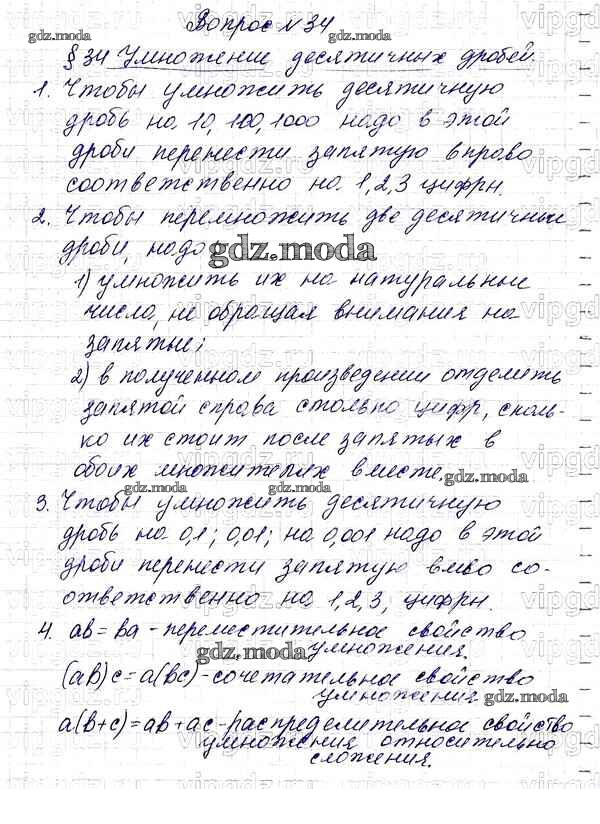 Вопрос № 34
§ 34 Умножение десятичных дробей
1. Чтобы умножить десятичную
дробь на 10, 100, 1000 надо в этой
дроби перенести запятую вправо
соответственно на 1, 2, 3 цифры.
2. Чтобы перемножить две десятичные
дроби, надо
1) умножить их на натуральные
числа, не обращая внимания на
запятые;
2) в полученном произведении отделить
запятой справа столько цифр, сколь-
ко их стоит после запятых в
обоих множителях вместе.
3. Чтобы умножить десятичную
дробь на 0,1; 0,01; на 0,001 надо в этой
дроби перенести запятую влево со-
ответственно на 1, 2, 3, цифры.
4. ab = ba - переместительное свойство
умножения.
(ab)c = a(bc) - сочетательное свойство
умножения
a(b+c) = ab + ac - распределительное свойство
умножения относительно
сложения.
gdz.moda
vipgdz.ru